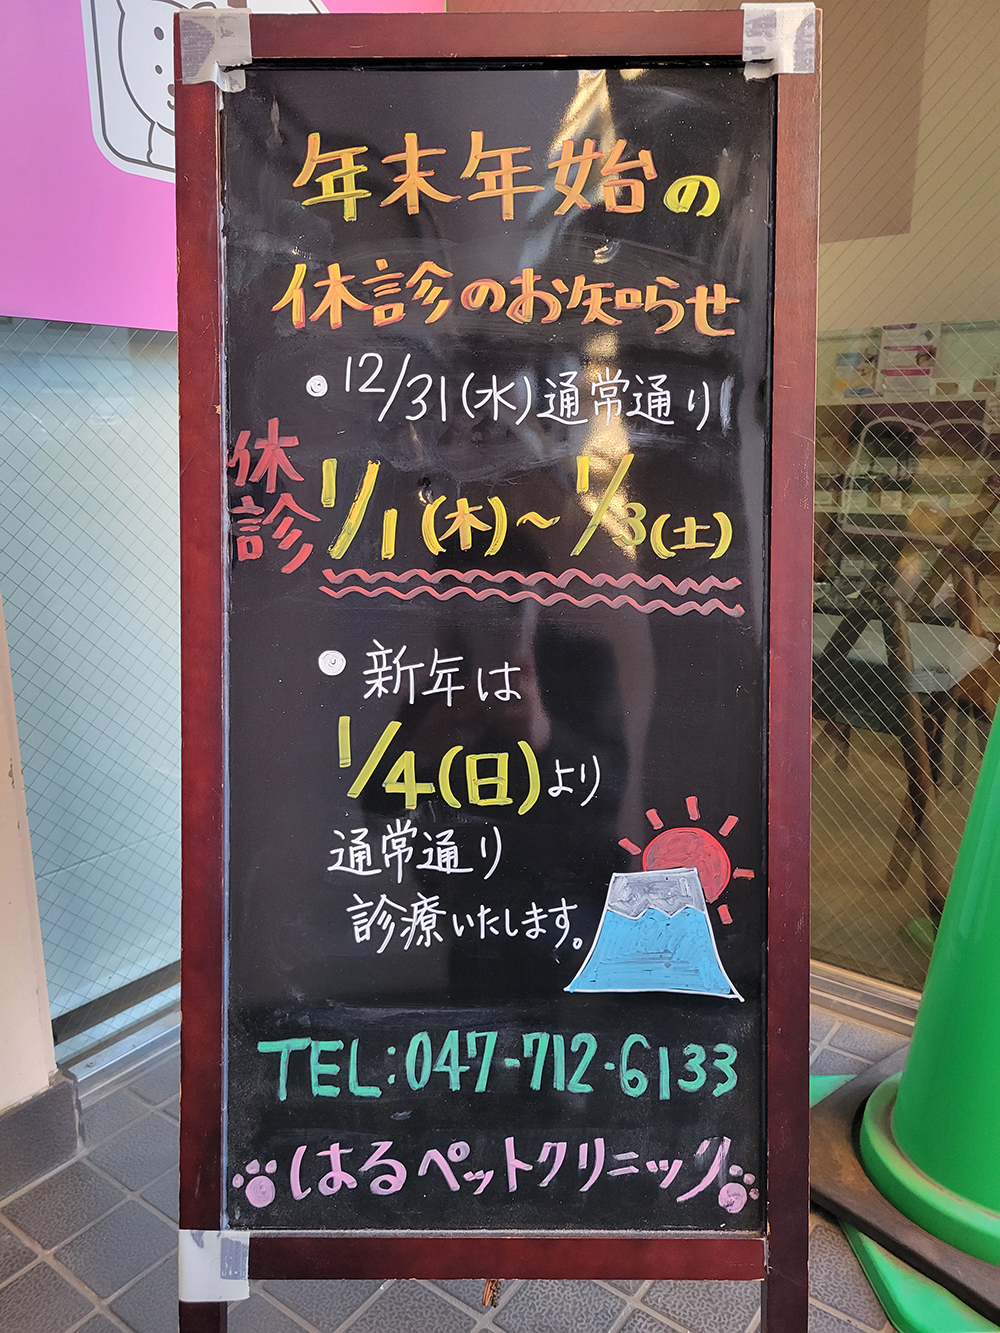 年末年始の
休診のお知らせ
• 12/31(水)通常通り
休診 1/1(木)〜1/3(土)
• 新年は
1/4(日)より
通常通り
診療いたします。
TEL:047-712-6133
はるペットクリニック